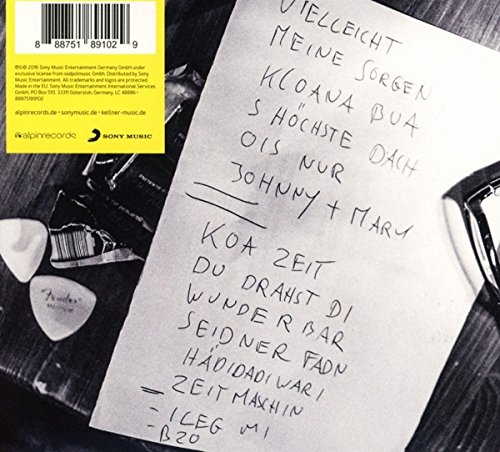 8 88751 89102 9
℗&© 2016 Sony Music Entertainment Germany GmbH under
exclusive license from südpolmusic GmbH. Distributed by Sony
Music Entertainment. All trademarks and logos are protected.
Made in the EU. Sony Music Entertainment International Services
GmbH, PO Box 510, 33311 Gütersloh, Germany. LC 48886 •
88875189102
alpinrecords.de • sonymusic.de • kellner-music.de
alpinrecords
SONY MUSIC
VIELLEICHT
MEINE SORGEN
KLOANA BUA
S HÖCHSTE DACH
OIS NUR
JOHNNY + MARY
KOA ZEIT
DU DRAHST DI
WUNDERBAR
SEIDNER FADN
HÄDIDADIWARI
ZEITMASCHIN
- ILEG MI
- B20
Fender
MEDIUM